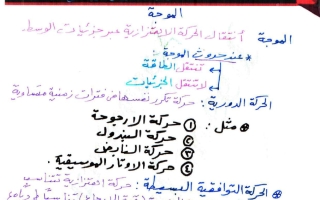 الموجة
الموجة انتقال الحركة الاهتزازية عبر جزيئات الوسط.
* عند حدوث الموجة :
تنتقل الطاقة
لا تنتقل الجزيئات
الحركة الدورية : حركة تكرر نفسها في فترات زمنية متساوية
* مثل : ① حركة الارجوحة
② حركة البندول
③ حركة النابض
④ حركة الاوتار الموسيقية.
* الحركة التوافقية البسيطة : حركة اهتزازية تتناسب